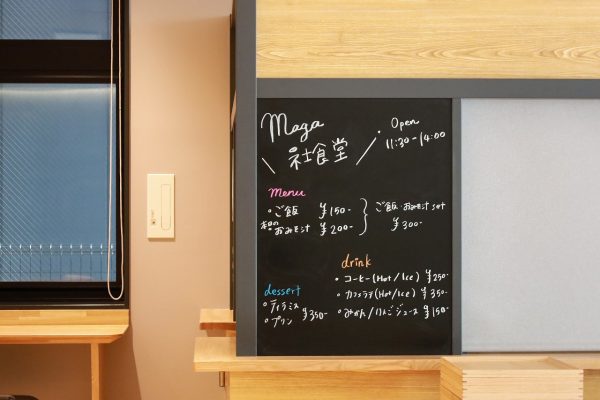 Maga
社食堂
Open
11:30-14:00
menu
・ご飯 ¥150-
本日の おみそ汁 ¥200-
ご飯・おみそ汁 set
¥300-
dessert
・ティラミス
・プリン
¥350-
drink
・コーヒー(Hot/Ice) ¥250-
・カフェラテ(Hot/Ice) ¥350-
・みかん/りんごジュース ¥150-